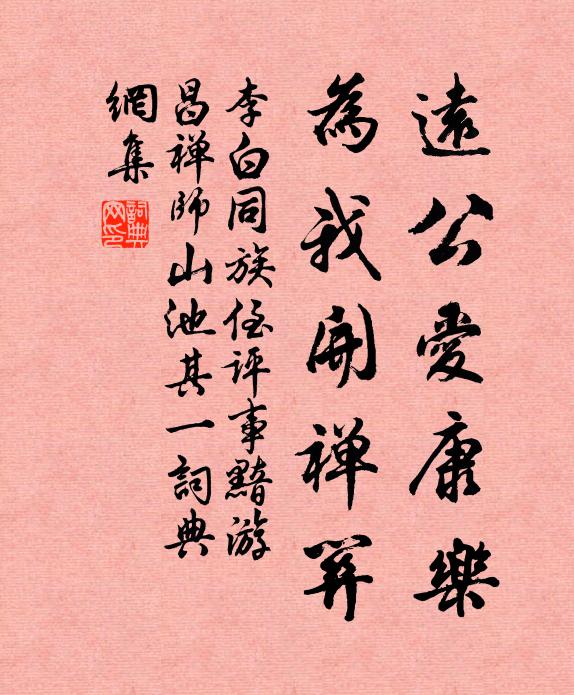 遠公愛康樂
為我開禪關
李白同族侄評事黯游
昌禪師山池其一詞典
網集
詞典網印